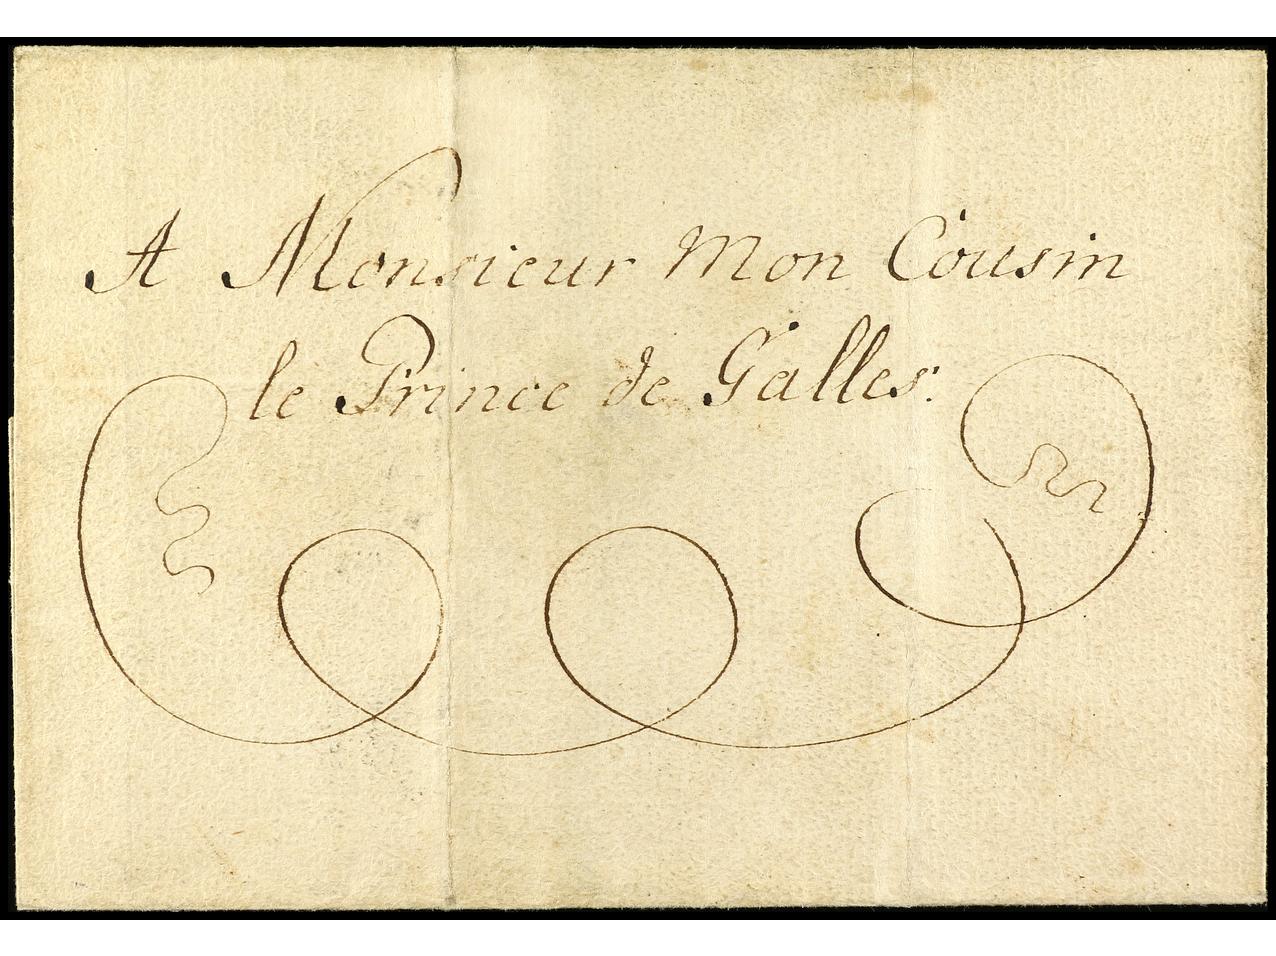 A Monsieur Mon Cousin
le Prince de Galles.